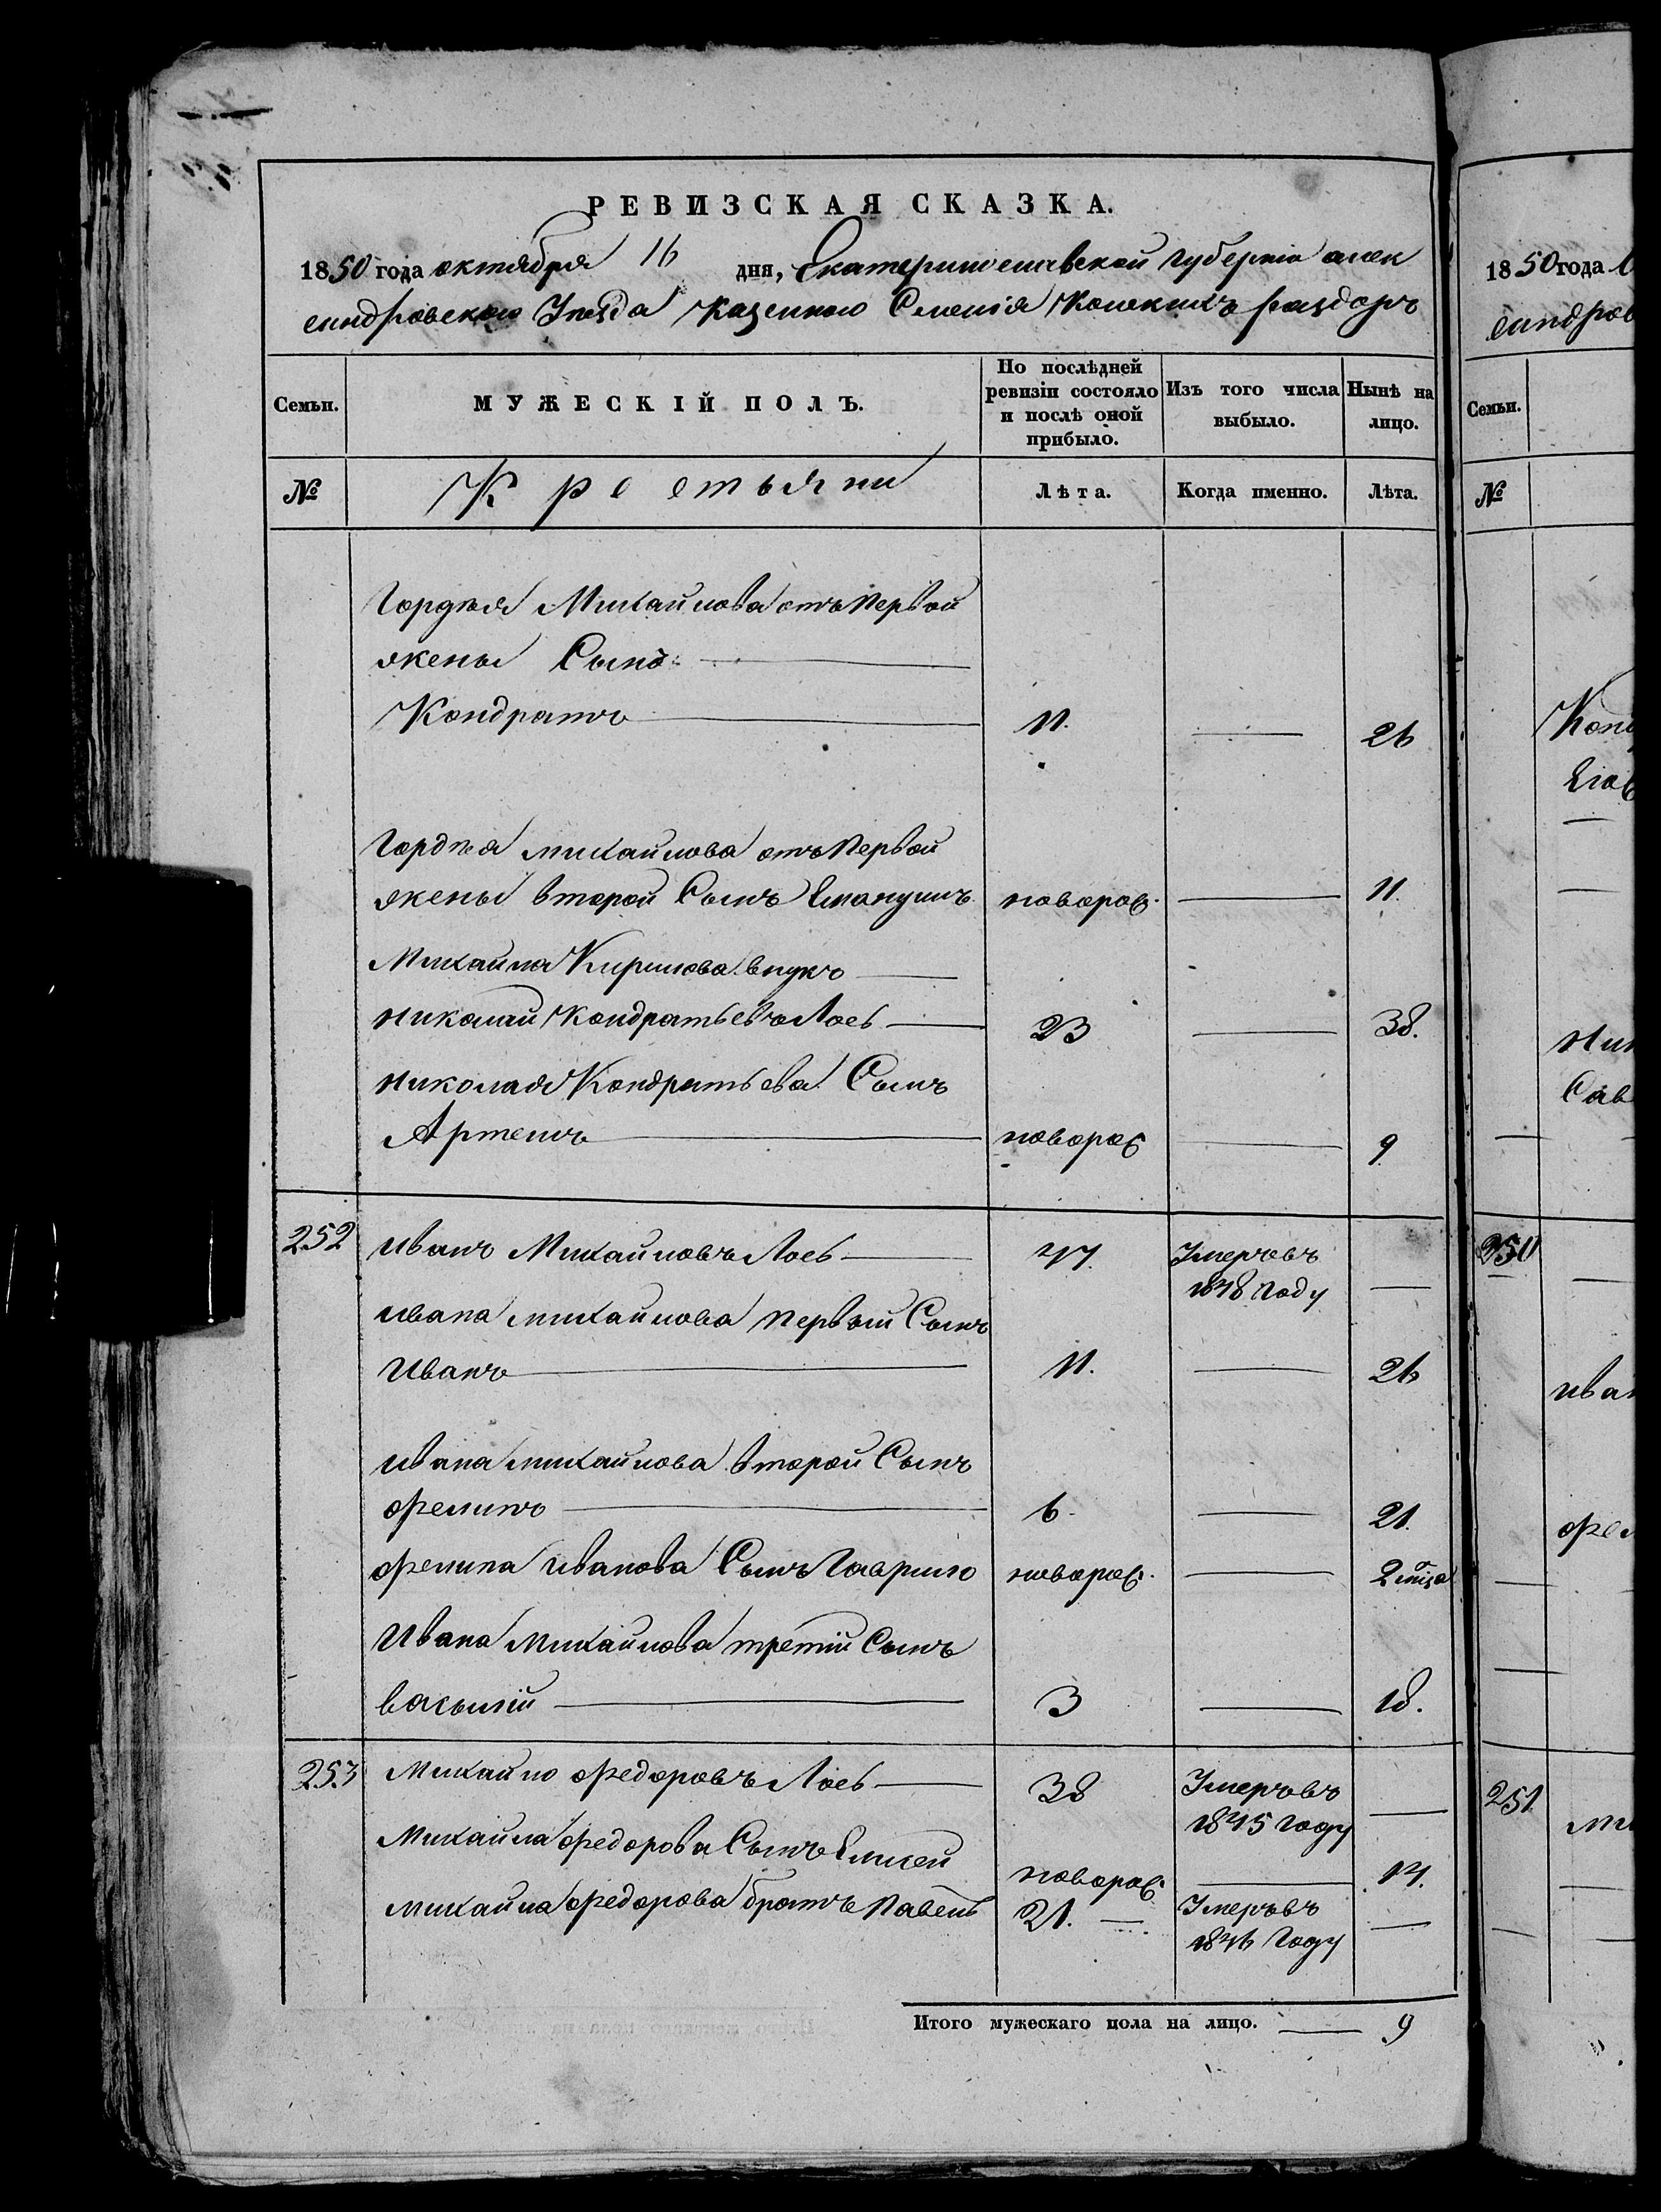 РЕВИЗСКАЯ СКАЗКА.
1850 года октября 16 дня, Екатеринославской губернiи алек
сандровского Уезда казенного Селенiя Конскихъ раздоръ
Семьи.
МУЖЕСКІЙ ПОЛЪ.
По послѣдней ревизіи состояло и послѣ оной прибыло.
Изъ того числа выбыло.
Нынѣ на лицо.
№ Крестьяни Лѣта. Когда именно. Лѣта.
Гордѣя Михайлова отъ Первой
жены Сынъ
Кондратъ 11. 26
Гордѣя михайлова отъ Первой
жены второй Сынъ новорож. 11.
Михайла Кирилова внукъ
николай Кондратьевъ Лоев 23 38.
николая Кондратьева Сынъ
Артемъ новорож 9
252 иванъ Михайловъ Лоев 47. Умеръ въ
1848 году
ивана михайлова первый Сынъ
Иванъ 11. 26
ивана михайлова второй Сынъ
филипъ 6. 21.
филипа иванова Сынъ Гаврило новорож. 2
Ивана михайлова третiй Сынъ
васылiй 3 18.
253 михайло федоровъ Лоев 38 Умеръ въ
1845 году
Михайла федорова Сынъ Елисей новорож. 14.
михайла федорова братъ Павелъ 21. Умеръ въ
1846 году
Итого мужескаго пола на лицо. 9
1850 года
сандров
Семьи.
№
Конд
Ни
Сав
250
ива
фил
251
ми